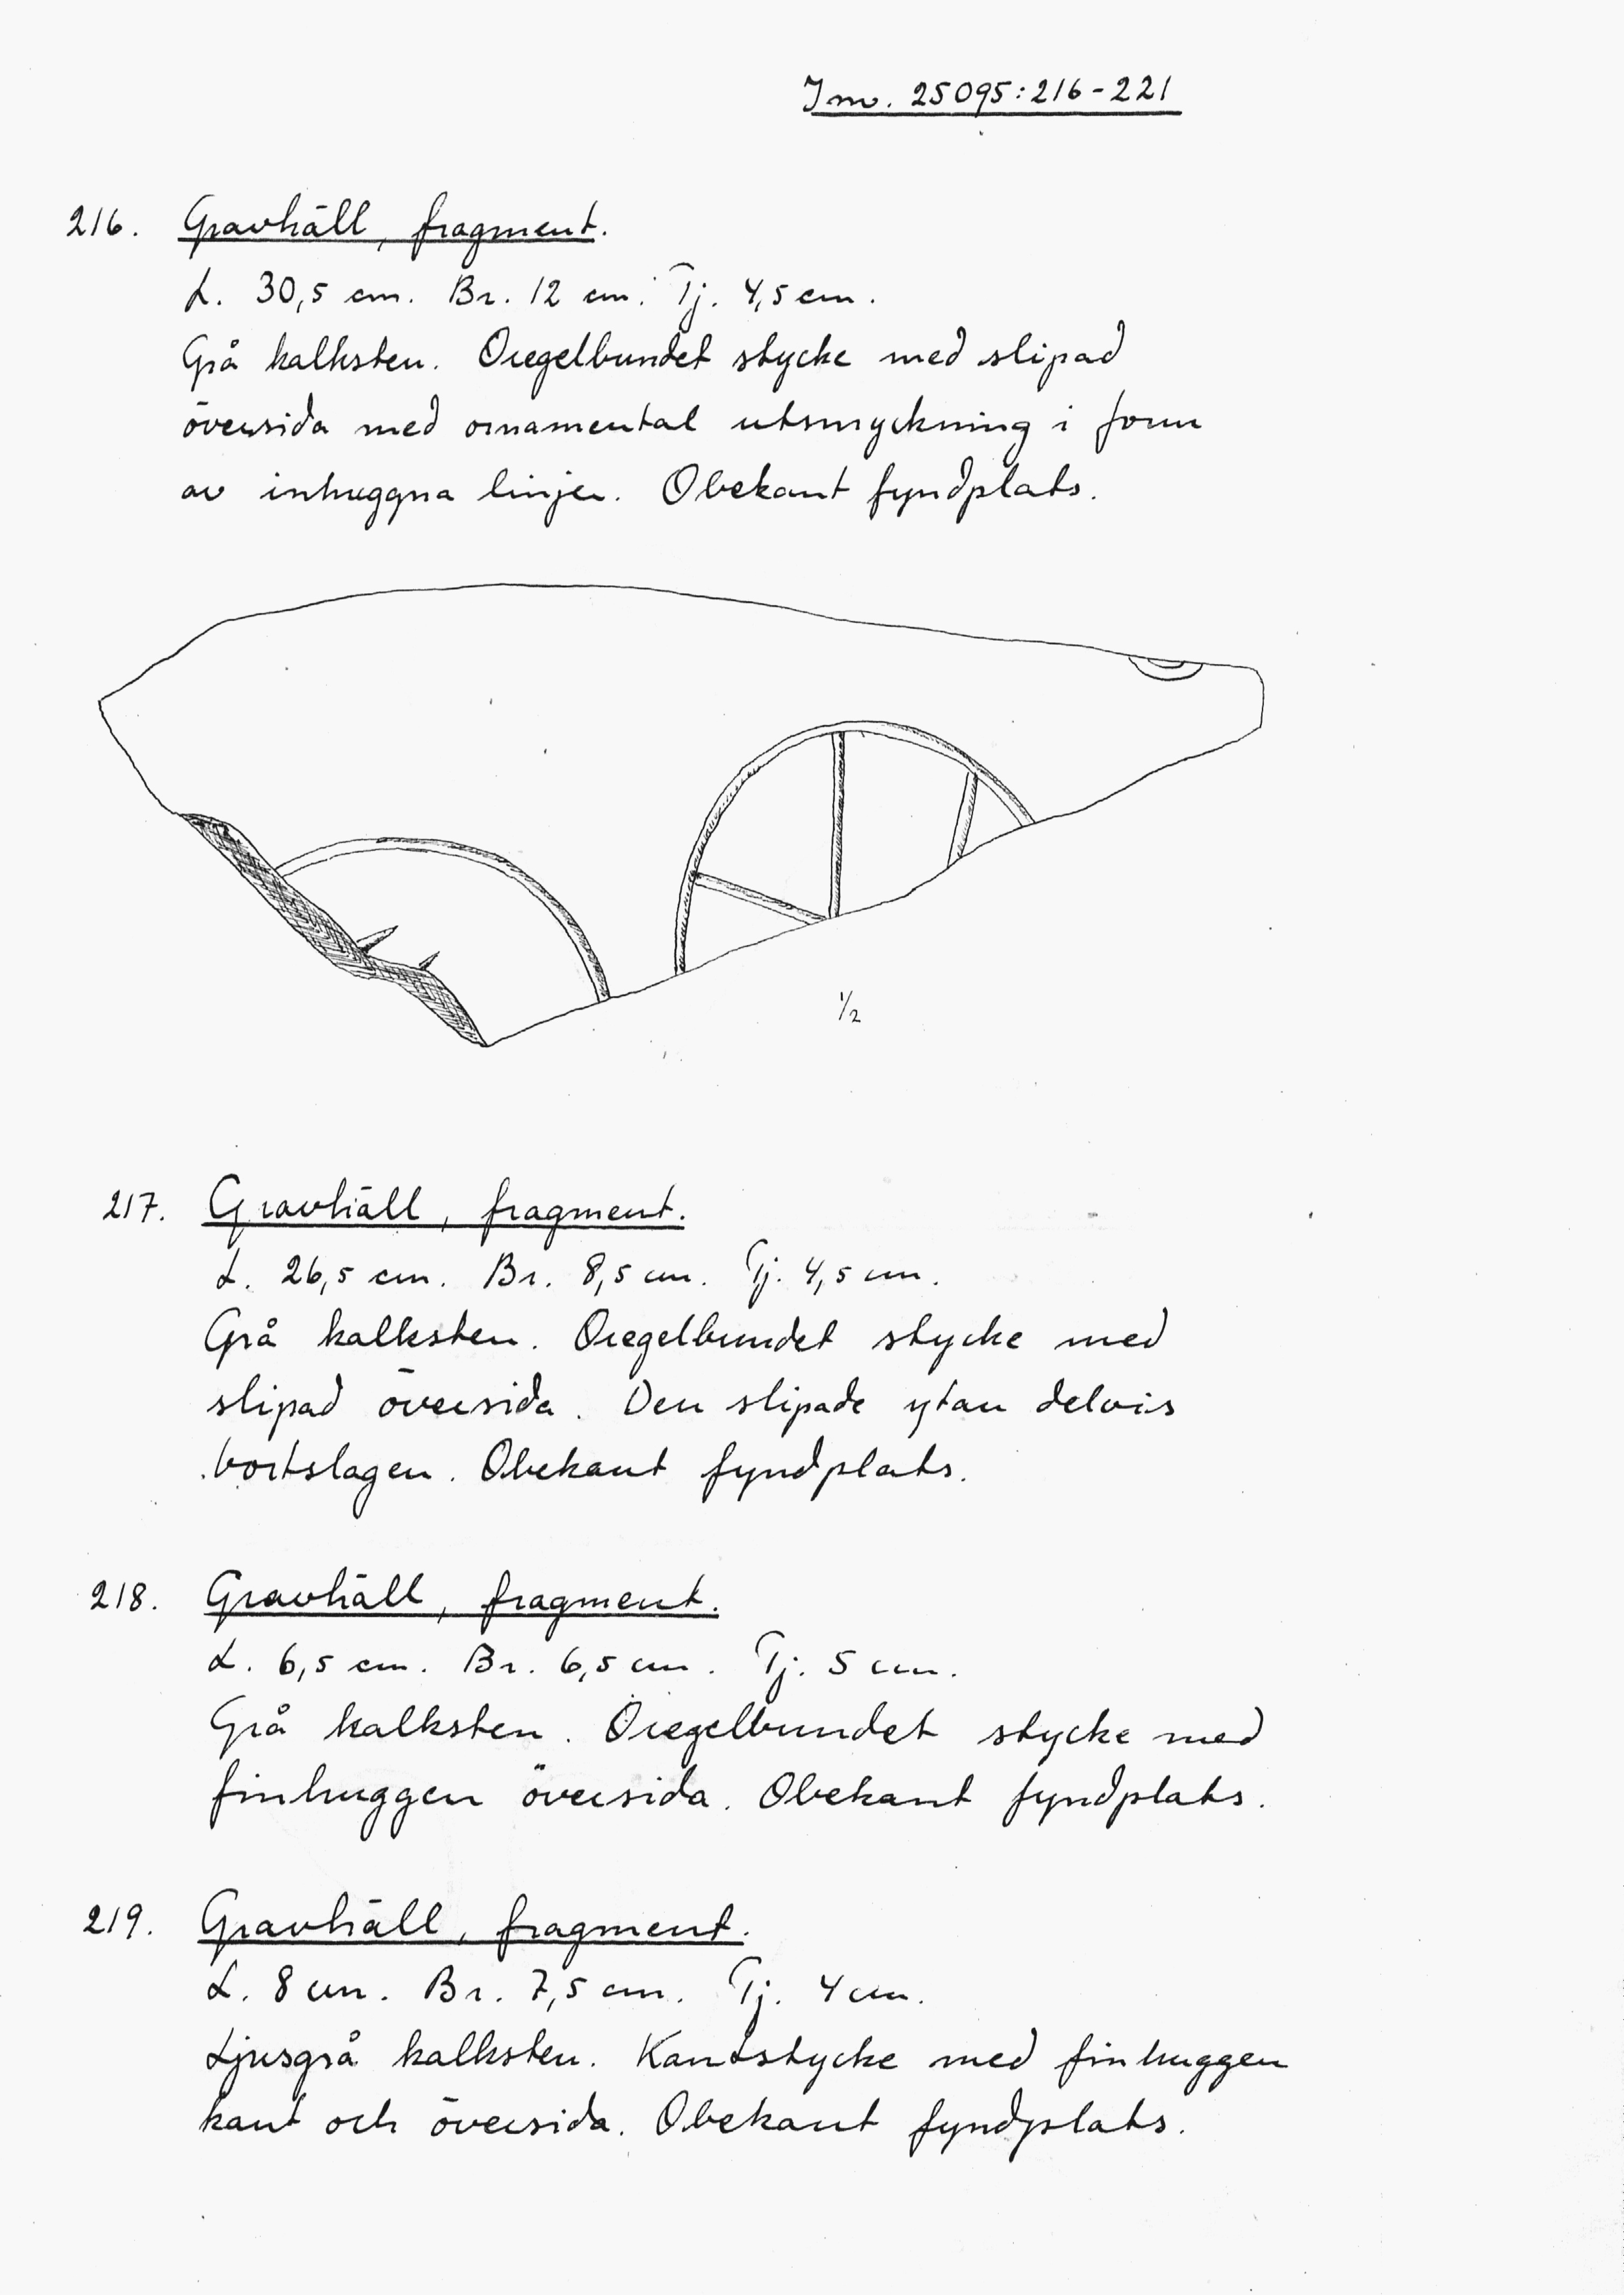 Inv. 25095:216-221
216. Gravhäll, fragment.
L. 30,5 cm. Br. 12 cm. Tj. 4,5 cm.
Grå kalksten. Oregelbundet stycke med slipad
översida med ornamental utsmyckning i form
av inhuggna linjer. Obekant fyndplats.
1/2
217. Gravhäll, fragment.
L. 26,5 cm. Br. 8,5 cm. Tj. 4,5 cm.
Grå kalksten. Oregelbundet stycke med
slipad översida. Den slipade ytan delvis
bortslagen. Obekant fyndplats.
218. Gravhäll, fragment.
L. 6,5 cm. Br. 6,5 cm. Tj. 5 cm.
Grå kalksten. Oregelbundet stycke med
finhuggen översida. Obekant fyndplats.
219. Gravhäll, fragment.
L. 8 cm. Br. 7,5 cm. Tj. 4 cm.
Ljusgrå kalksten. Kantstycke med finhuggen
kant och översida. Obekant fyndplats.